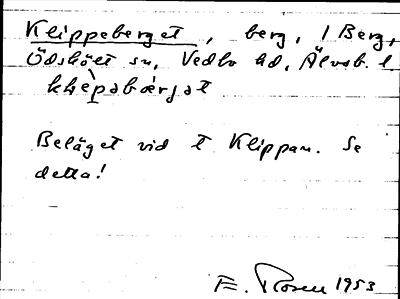 Klippeberget, berg, 1 Berg,
Ödskölt sn, Vedbo hd, Älvsb. l
Beläget vid t Klippan. Se
detta!
E. Rosen 1953